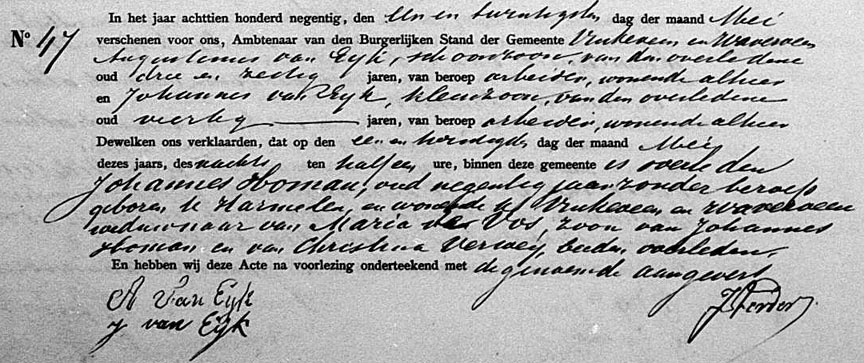 In het jaar achttien honderd negentig, den een en twintigsten dag der maand Mei
No 47 verschenen voor ons, Ambtenaar van den Burgerlijken Stand der Gemeente Vinkeveen en Waverveen
Augustinus van Eyk, schoonzoon, van den overledene
oud drie en zestig jaren, van beroep arbeider, wonende alhier
en Johannes van Eyk, kleinzoon, van den overledene
oud veertig jaren, van beroep arbeider, wonende alhier
Dewelken ons verklaarden, dat op den een en twintigsten dag der maand Mei
dezes jaars, des nachts ten half een ure, binnen deze gemeente is overleden
Johannes Homan, oud negentig jaar zonder beroep
geboren te Harmelen, en wonende te Vinkeveen en Waverveen
weduwnaar van Maria Vos, zoon van Johannes
Homan en van Christina Verweij, beiden overleden.
En hebben wij deze Acte na voorlezing onderteekend met de genoemde aangevers
A Van Eyk
J van Eijk